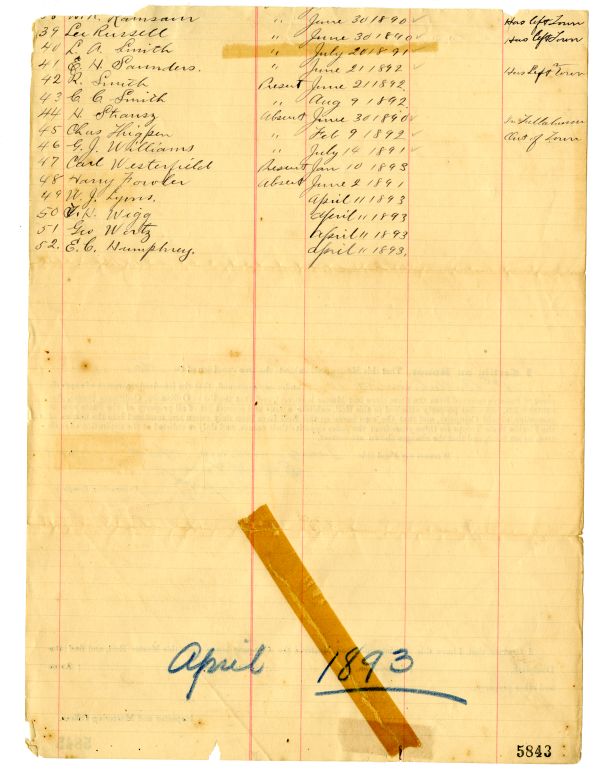 38 W. R. Ramsaur " June 30 1890 ✓ Has left Town
39 Lee Russell " June 30 1890 ✓ Has left Town
40 L. A. Smith " July 20 1891 ✓
41 E. H. Saunders. " June 21 1892 ✓ Has Left Town
42 R. Smith Present June 21 1892
43 C. C. Smith " Aug 9 1892
44 H. Strausz Absent June 30 1890 ✓ In Tallahassee
45 Chas " Feb 9 1892 ✓ Out of Town
46 G. J. Williams " July 14 1891 ✓
47 Carl Westerfield Present Jan 10 1893
48 Harry Fowler Absent June 2 1891
49 W. J. Lyons. April 11 1893
50 H. Wigg April 11 1893
51 Geo Wertz April 11 1893
52. E. C. Humphrey. April 11 1893.
April 1893
5843